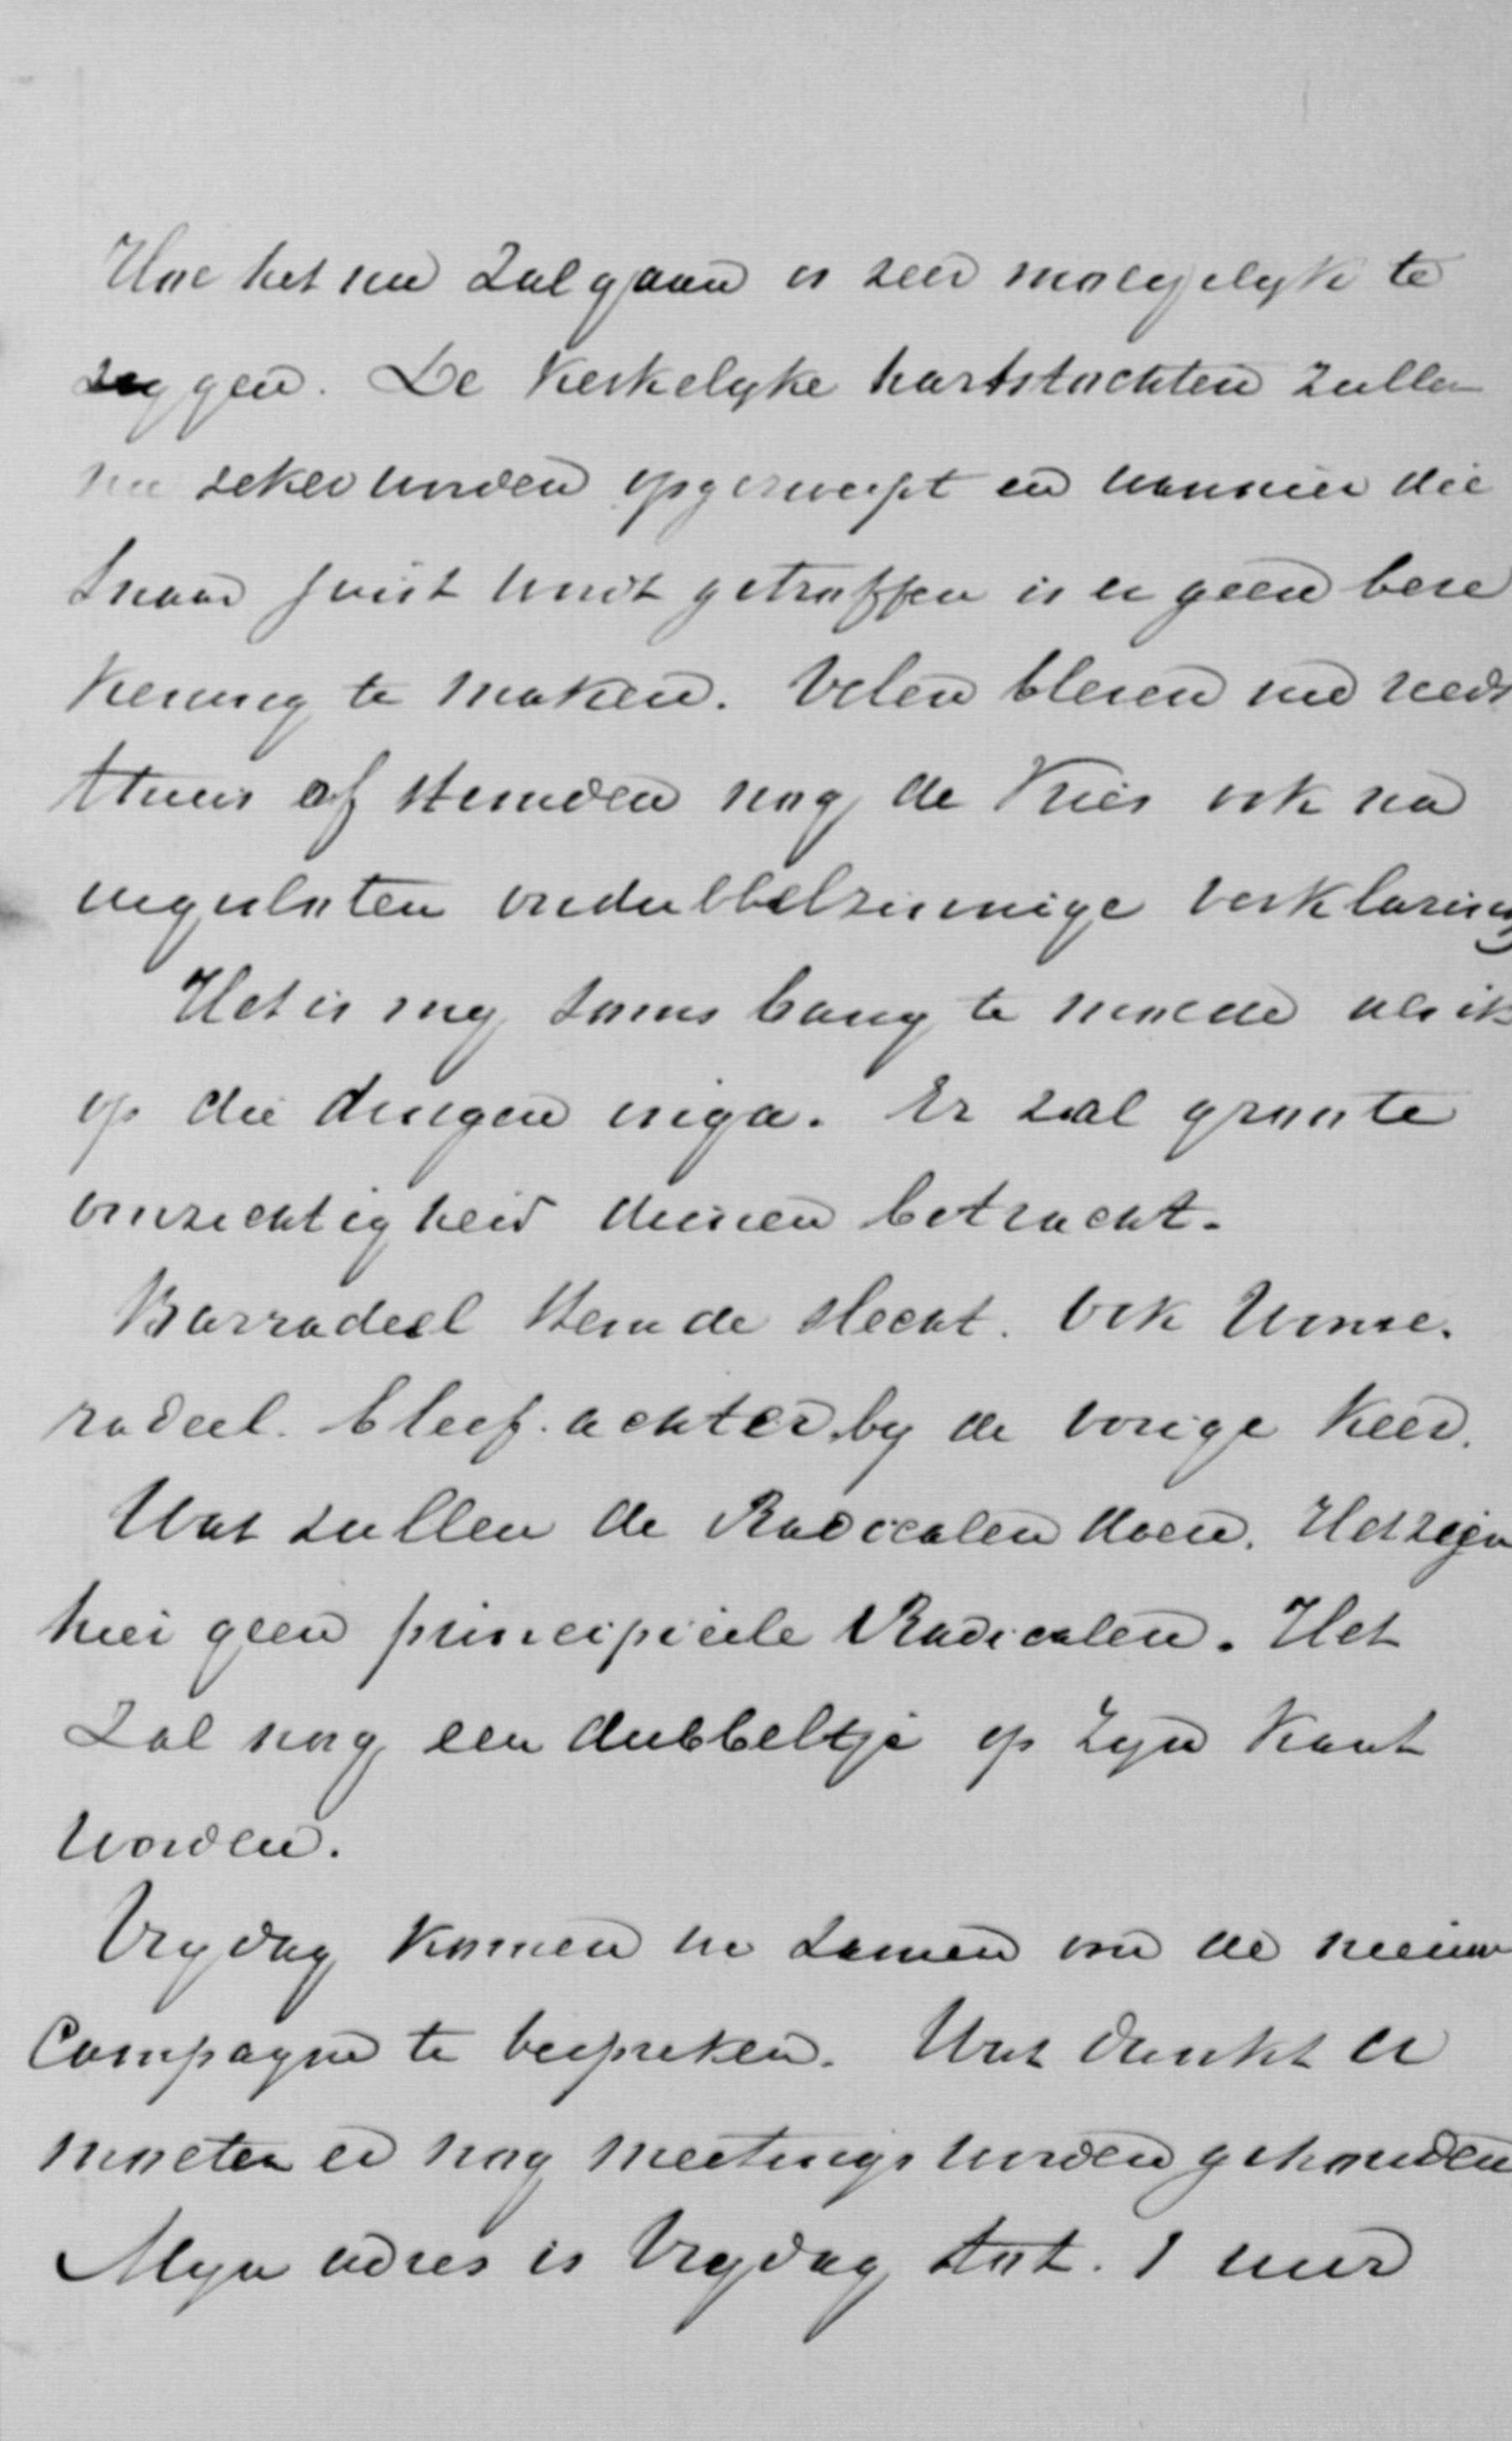 Hoe het nu zal gaan is zeer moeyelyk te
zeggen. De Kerkelyke hartstochten zullen
nu zeker worden opgezweept en wanneer die
snaar juist wordt getroffen is er geen bere
kening te maken. Velen bleven nu reeds
thuis of stemden nog de Kies ook na
ongesloten ondubbelzinnige verklaring
Het is my soms bang te moede als ik
op die dingen inga. Er zal groote
omzichtigheid dienen betracht.
Barradeel stemde slecht. Ook Wonse.
radeel. bleef. achter by de vorige Keer.
Wat zullen de Radicalen doen. Het zijn
hier geen principieele Radicalen. Het
zal nog een dubbeltje op zyn Kant
worden.
Vrydag Komen we samen om de nieuwe
Campagne te bespreken. Wat dunkt U
moeten er nog meetings worden gehouden
Myn adres is Vrydag tot. 1 uur